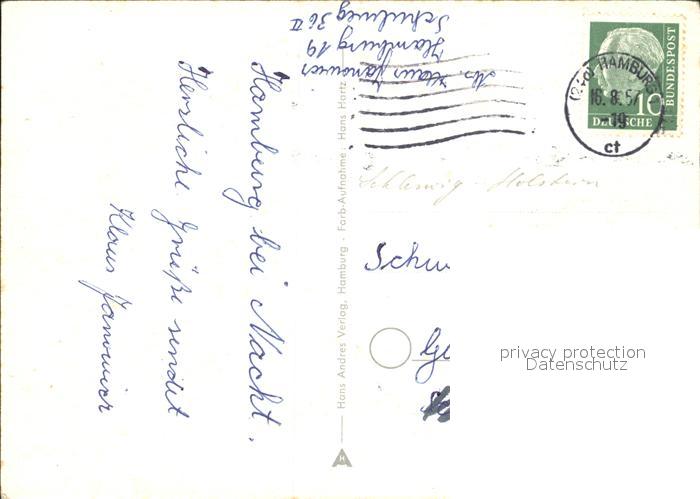 Hamburg bei Nacht.
Herzliche Grüße sendet
Klaus Janowicz
Abs. Klaus Janowicz
Hamburg 19
Schulweg 36 II
Hans Andres Verlag, Hamburg - Farb-Aufnahme: Hans Hartz
H
DEUTSCHE
BUNDESPOST
10
HAMBURG
16. 8. 57
19
ct
Schleswig - Holstein
Schw
privacy protection
Datenschutz